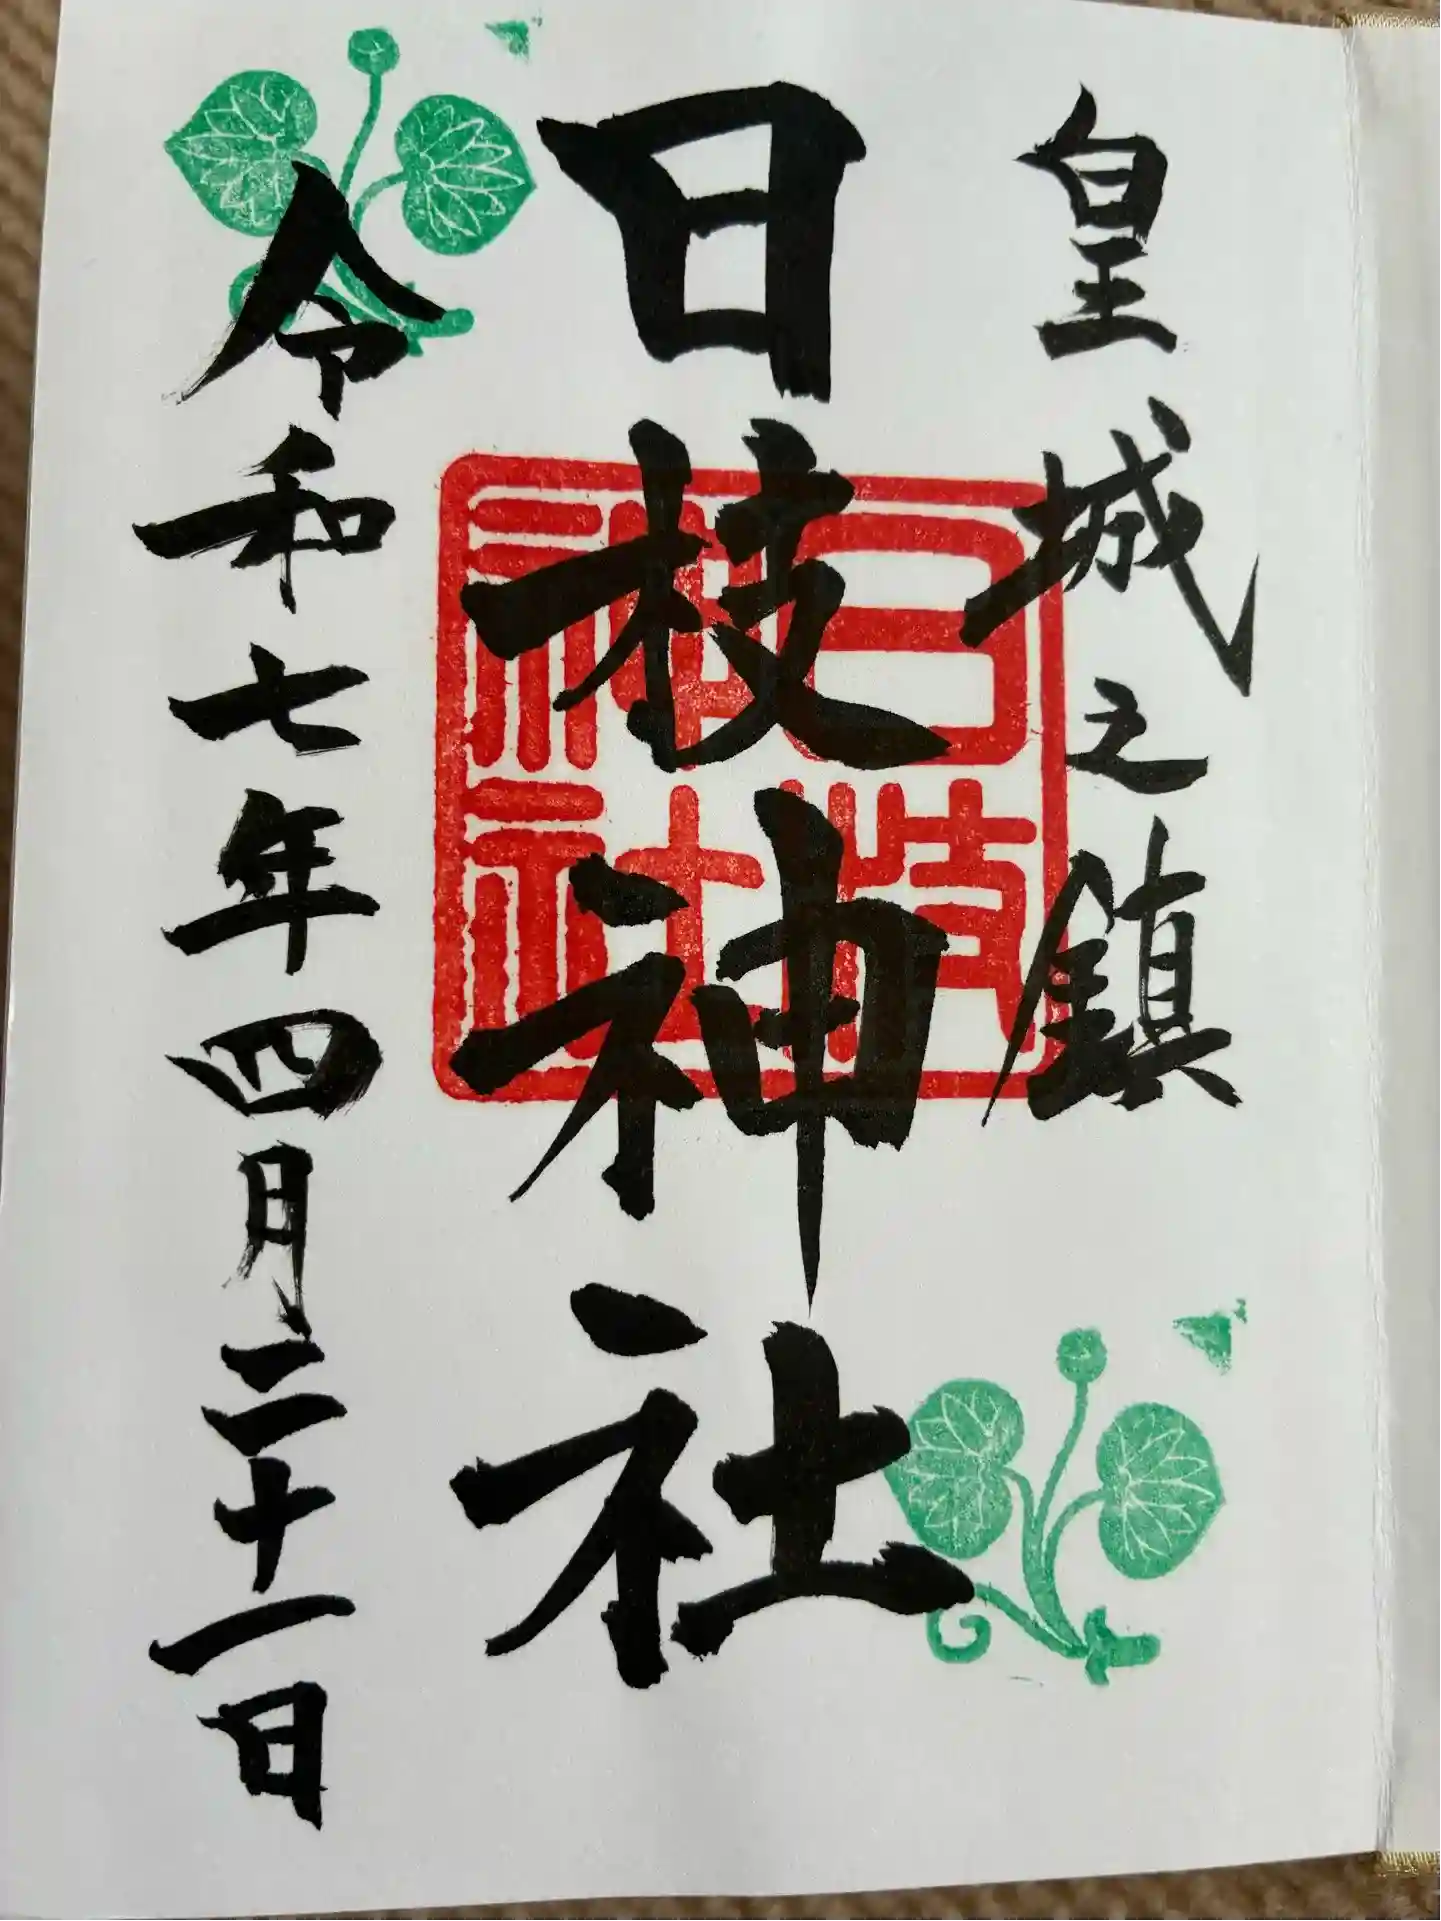 皇城之鎮
日枝神社
日枝
神社
令和七年四月二十一日